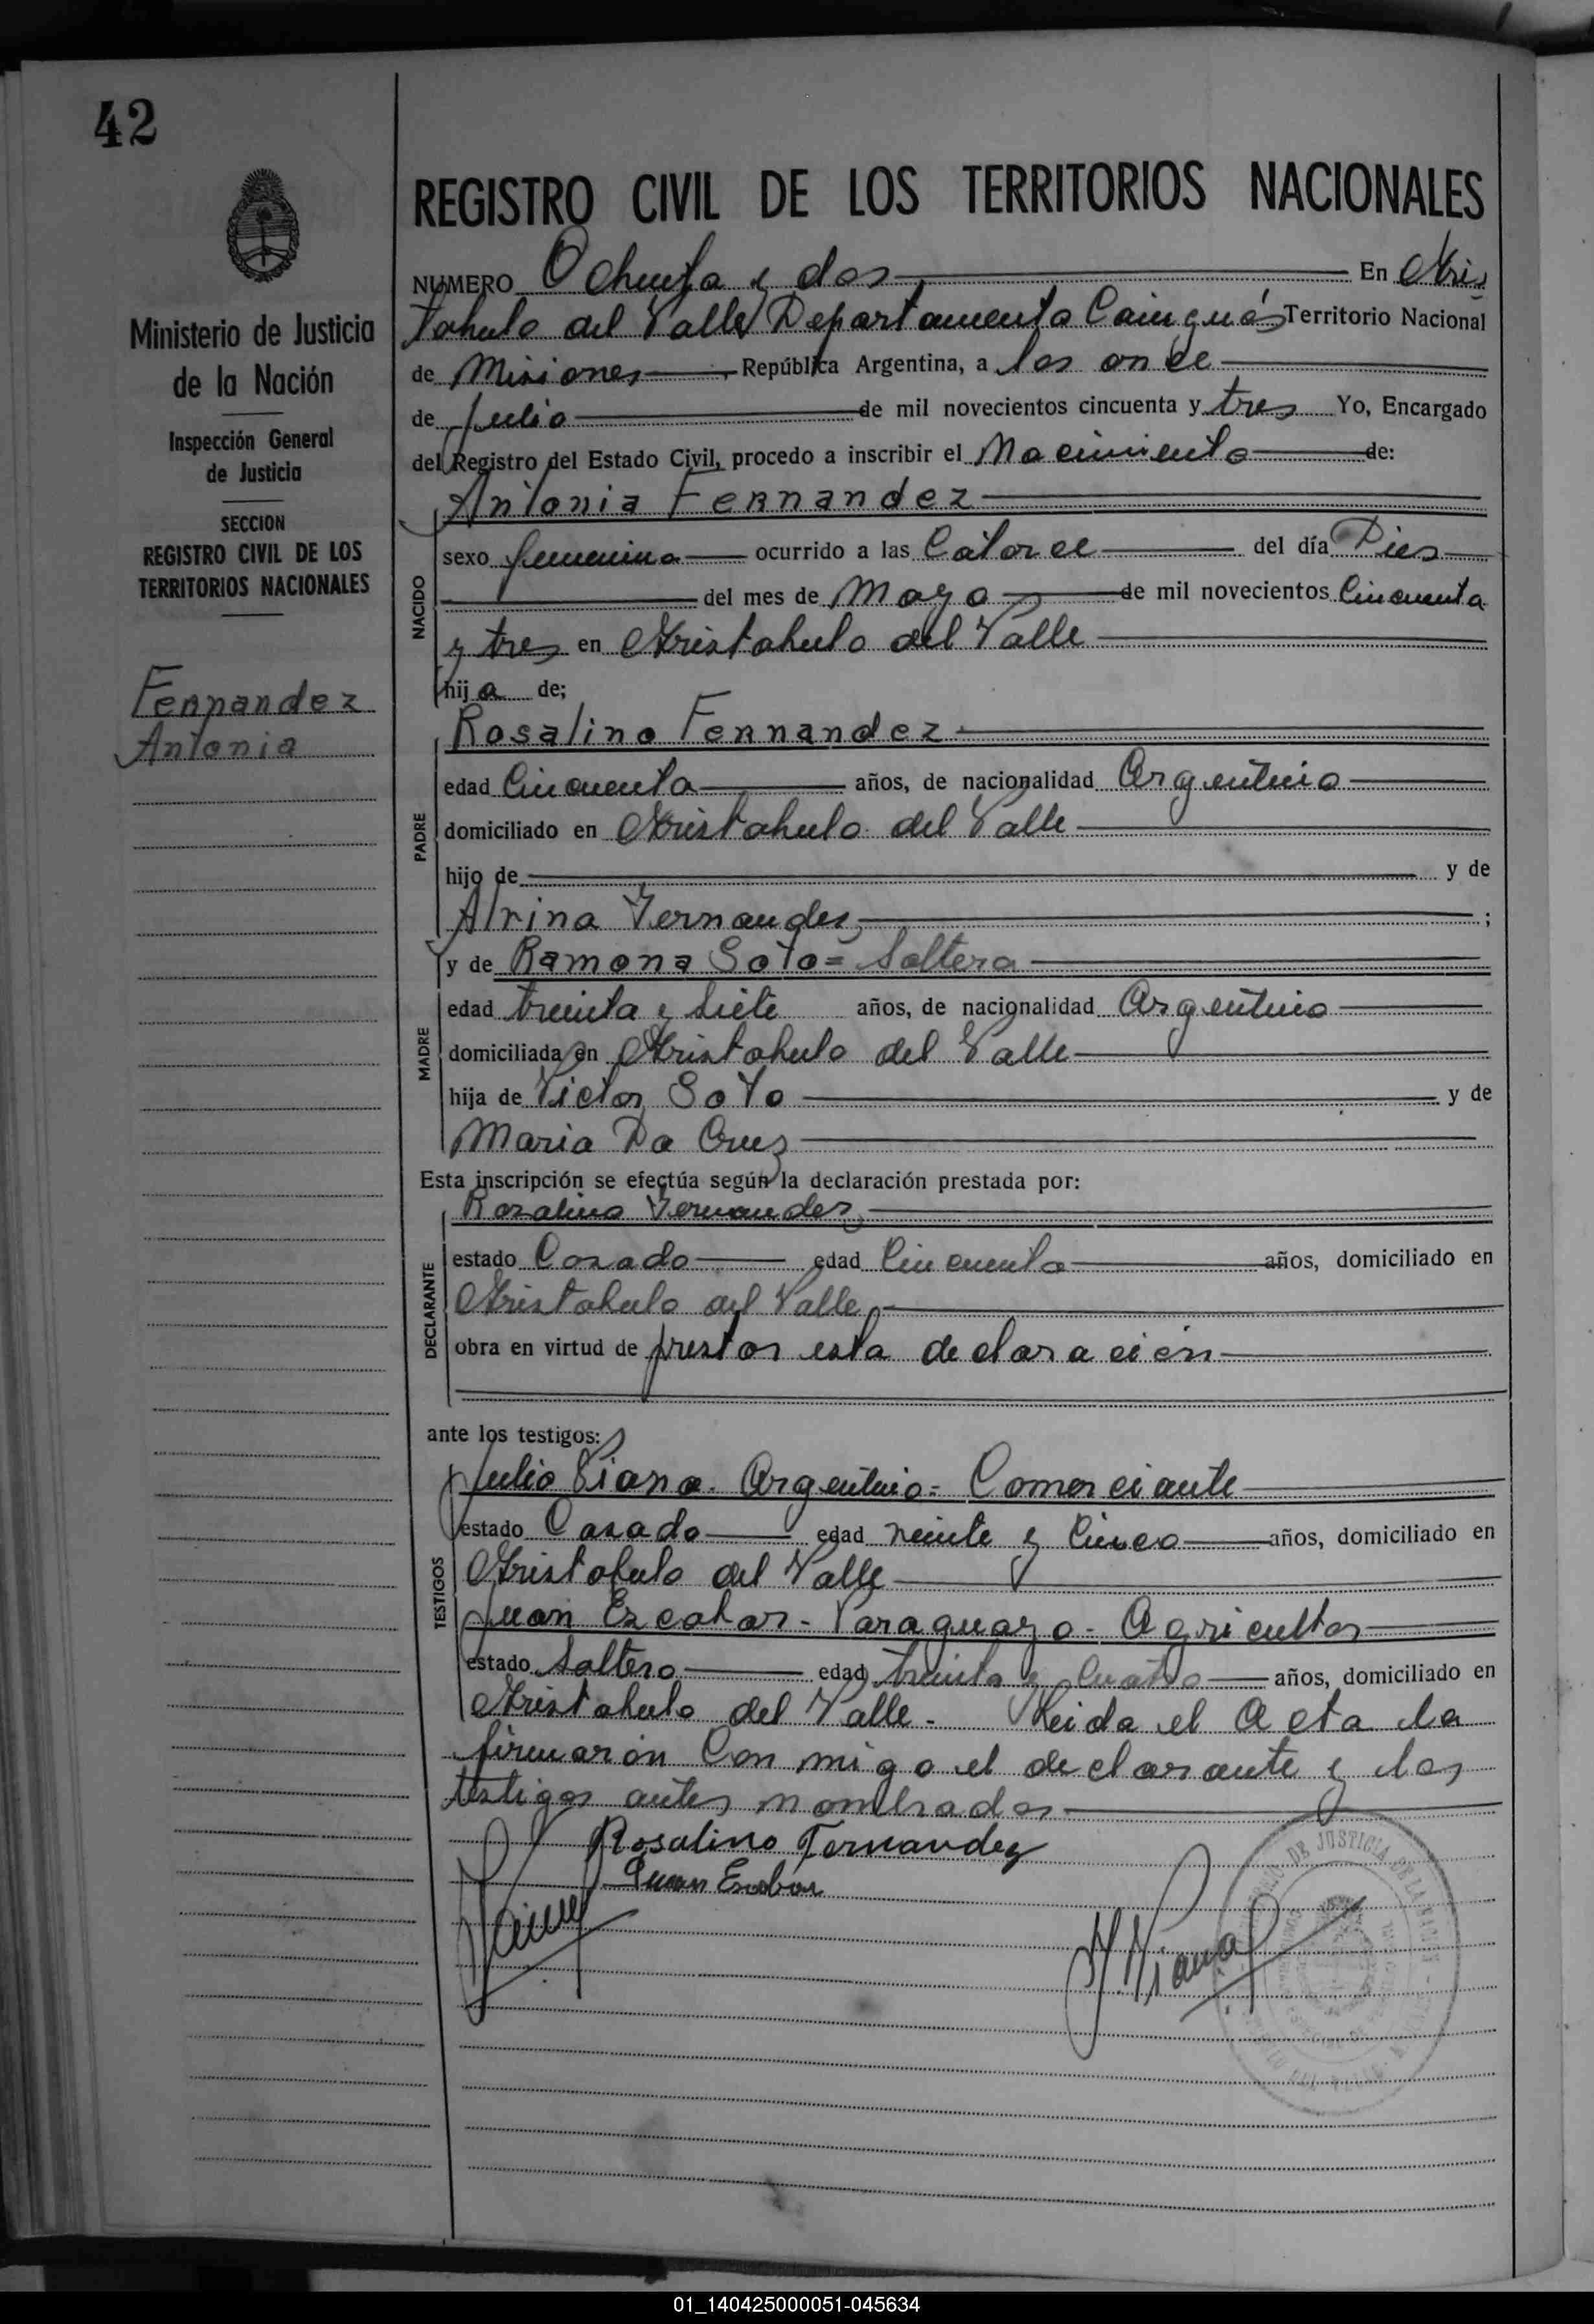 42
Ministerio de Justicia
de la Nación
Inspección General
de Justicia
SECCION
REGISTRO CIVIL DE LOS
TERRITORIOS NACIONALES
Fernandez
Antonia
REGISTRO CIVIL DE LOS TERRITORIOS NACIONALES
NUMERO Ochenta y dos En Aris
tobulo del Valle Departamento Cainguás Territorio Nacional
de Misiones, República Argentina, a los once
de Julio de mil novecientos cincuenta y tres Yo, Encargado
del Registro del Estado Civil, procedo a inscribir el Nacimiento de:
NACIDO
Antonia Fernandez
sexo femenino ocurrido a las Catorce del día Dies
del mes de Mayo de mil novecientos Cincuenta
y tres en Aristobulo del Valle
hija de;
PADRE
Rosalino Fernandez
edad Cincuenta años, de nacionalidad Argentino
domiciliado en Aristobulo del Valle
hijo de y de
Alrina Fernandez;
MADRE
y de Ramona Soto = Soltera
edad treinta y siete años, de nacionalidad Argentino
domiciliada en Aristobulo del Valle
hija de Victor Soto y de
Maria Da Cruz
Esta inscripción se efectúa según la declaración prestada por:
DECLARANTE
Rosalino Fernandez
estado Casado edad Cincuenta años, domiciliado en
Aristobulo del Valle
obra en virtud de prestar esta declaración
ante los testigos:
TESTIGOS
Julio Viana. Argentino = Comerciante
estado Casado edad veinte y Cinco años, domiciliado en
Aristobulo del Valle
Juan Escobar - Paraguayo - Agricultor
estado Soltero edad treinta y Cuatro años, domiciliado en
Aristobulo del Valle - Leida el Acta la
firmarón Con migo el declarante y los
testigos antes nombrados
Rosalino Fernandez
Juan Escobar
J. Viana
DE JUSTICIA DE LA NACION
01_140425000051-045634